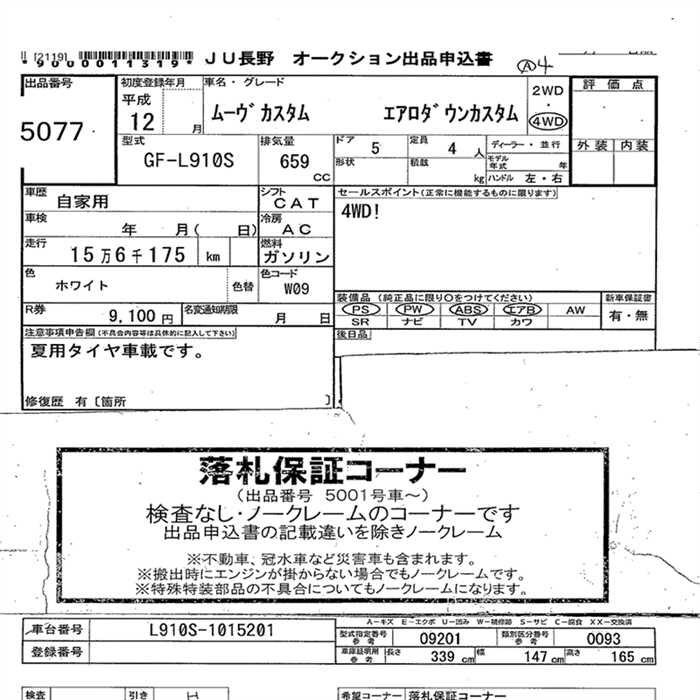 [2119]
*9000011319* JU長野 オークション出品申込書
A4
出品番号
5077
初度登録年月
平成
12 月
車名・グレード
ムーヴカスタム エアロダウンカスタム
2WD
・
4WD
評価点
外装 内装
型式
GF-L910S
排気量
659 CC
ドア 5
形状
定員 4 人
積載 kg
ディーラー・並行
モデル年式 年
ハンドル 左・右
車歴
自家用
シフト
CAT
車検
年 月( 日)
冷房
AC
走行
15万6千175 km
燃料
ガソリン
色
ホワイト
色替
色コード
W09
R券
9,100円
名変通知期限
月 日
セールスポイント(正常に機能するものに限ります)
4WD!
装備品(純正品に限り○をつけてください)
PS PW ABS エアB AW
SR ナビ TV カワ
新車保証書
有・無
後日品
注意事項申告欄(不具合内容等は具体的に記入して下さい)
夏用タイヤ車載です。
修復歴 有〔箇所 〕
落札保証コーナー
(出品番号 5001号車~)
検査なし・ノークレームのコーナーです
出品申込書の記載違いを除きノークレーム
※不動車、冠水車など災害車も含まれます。
※搬出時にエンジンが掛からない場合でもノークレームです。
※特殊特装部品の不具合についてもノークレームになります。
A-キズ E-エクボ U-凹み W-補修跡 S-サビ C-腐食 XX-交換済
車台番号
L910S-1015201
登録番号
型式指定番号
参考
09201
類別区分番号
参考
0093
車庫証明用
参考
長さ 339 cm 幅 147 cm 高さ 165 cm
検査
引き
希望コーナー 落札保証コーナー